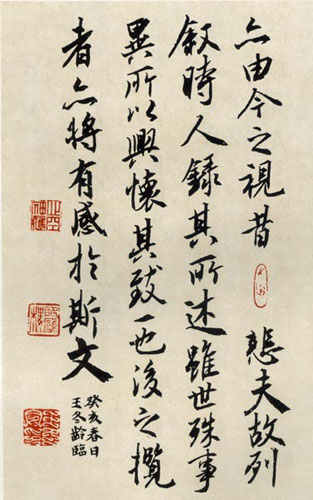 亦由今之視昔 悲夫故列
叙時人錄其所述雖世殊事
異所以興懷其致一也後之攬
者亦將有感於斯文
癸亥春日
王冬齡臨